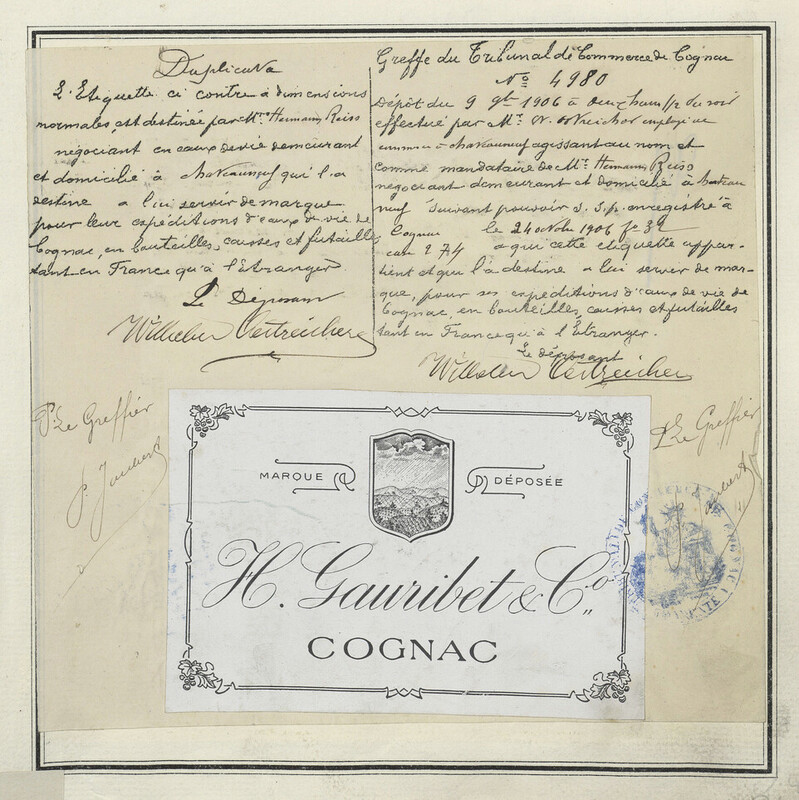 Duplicata
L'Etiquette ci contre à dimensions
normales, est destinée par Mr. Hermann Reiss
négociant en eaux de vie demeurant
et domicilié à chateauneuf qui l'a
destine a lui servir de marque
pour leur expéditions d'eaux de vie de
Cognac, en bouteilles, caisses et futailles
tant en France qu'à l'Etranger
Le Déposant
Wilhelm Oestreicher
Greffe du Tribunal de Commerce de Cognac
No 4980
Dépôt du 9 9bre 1906 à deux heures du soir
effectué par Mr. W. employé de
commerce à chateauneuf agissant au nom et
comme mandataire de Mr. Hermann Reiss
négociant demeurant et domicilié à chateau
neuf suivant pouvoir s. s. p. enregistré à
Cognac le 24 octobre 1906 fo 32
case 274 a qui cette etiquette appar-
tient et qui l'a destine a lui servir de mar-
que, pour ses expéditions d'eaux de vie de
Cognac, en bouteilles, caisses et futailles
tant en France qu'à l'Etranger.
Le déposant
Wilhelm Oestreicher
P. Le Greffier
P. Le Greffier
MARQUE DÉPOSÉE
H. Gauribet & Co.
COGNAC